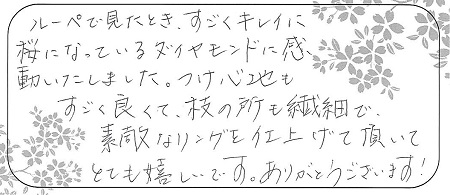 ルーペで見たとき、すごくキレイに
桜になっているダイヤモンドに感
動いたしました。つけ心地も
すごく良くて、枝の所も繊細で
素敵なリングを仕上げて頂いて
とても嬉しいです。ありがとうございます!